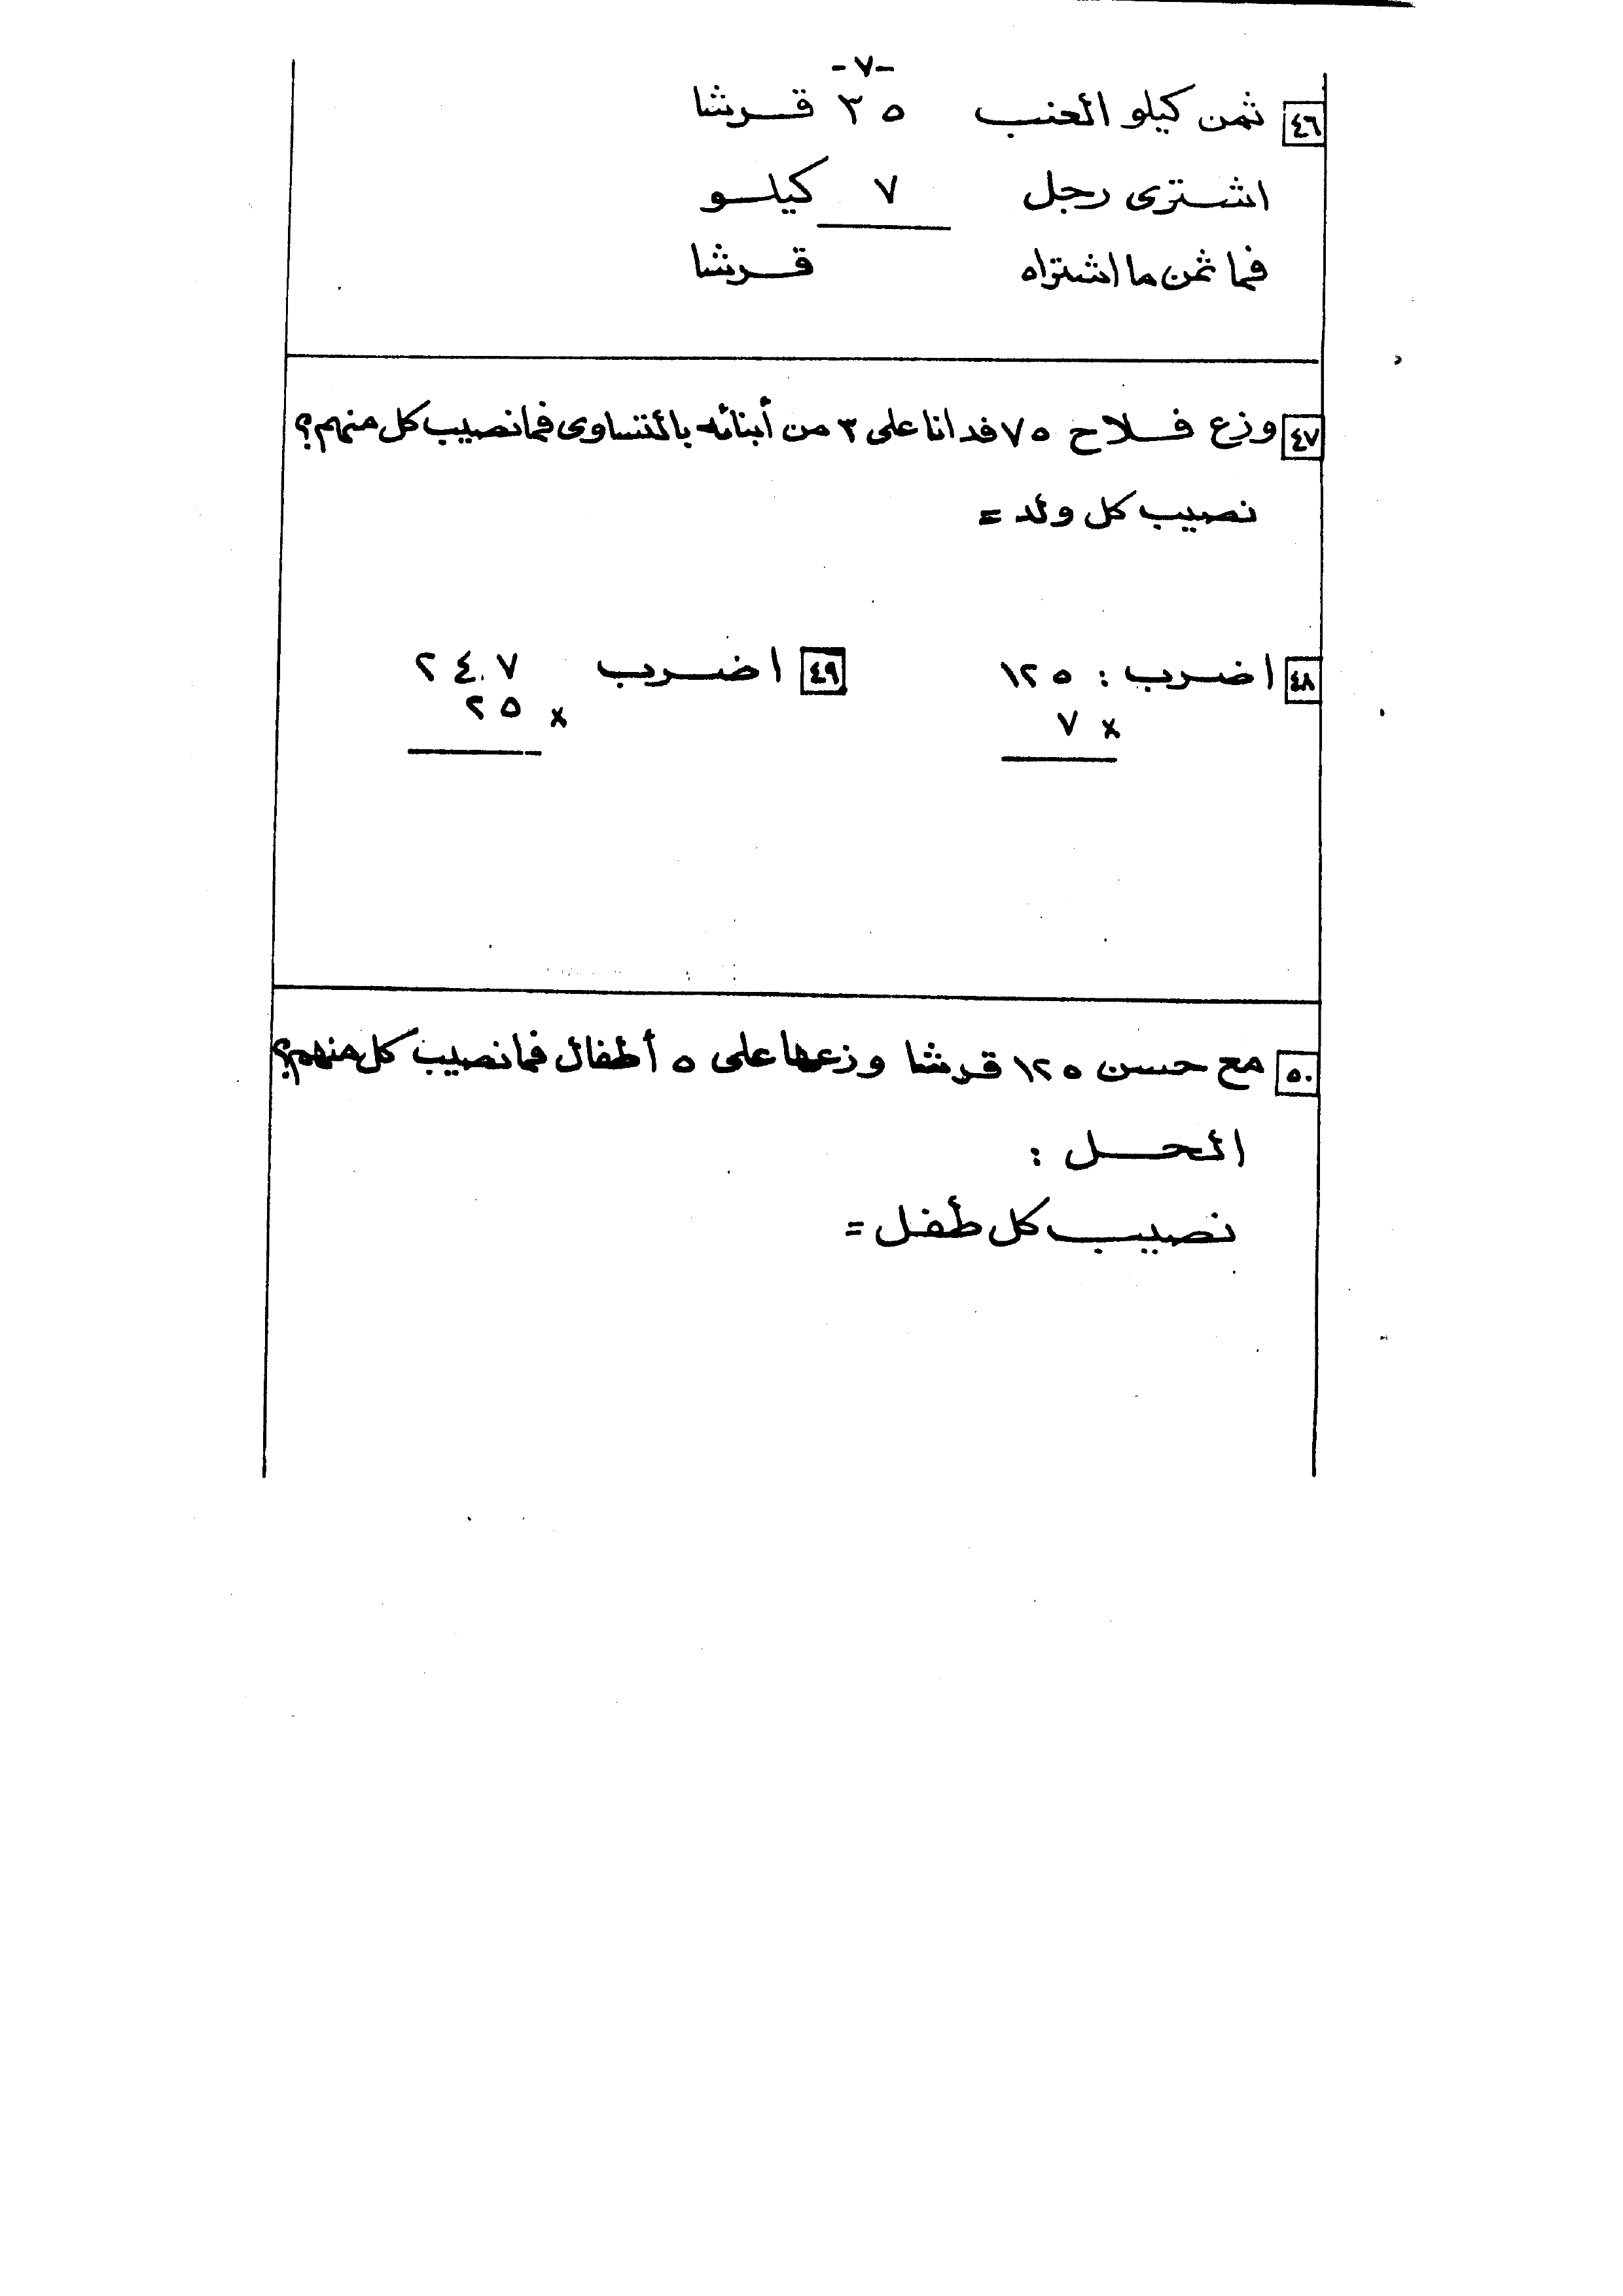 -٧-
٤٦ ثمن كيلو العنب ٣٥ قرشا
اشترى رجل ٧ كيلو
فما ثمن ما اشتراه قرشا
٤٧ وزع فلاح ٧٥ فدانا على ٣ من أبنائه بالتساوى فما نصيب كل منهم؟
نصيب كل ولد =
٤٨ اضرب : ١٢٥
× ٧
٤٩ اضرب ٢٤٠٧
× ٢٥
٥٠ مع حسن ١٢٥ قرشا وزعها على ٥ أطفال فما نصيب كل منهم؟
الحل :
نصيب كل طفل =